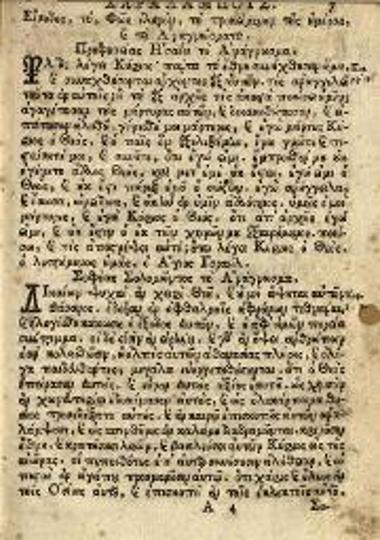 Εἴσοδος, τό, Φῶς ἱλαρόν, τὸ προκείμενον τῆς ἡμέρας,
ϗ τὰ Ἀναγνώσματα.
Προφητείας Ἡσαΐου τὸ Ἀνάγνωσμα.
Τάδε λέγει Κύριος· πάντα τὰ ἔθνη συνήχθησαν ἅμα,
ϗ συναχθήσονται ἄρχοντες ἐξ αὐτῶν. τίς ἀναγγελεῖ
ταῦτα
ἀγαγέτωσαν τοὺς μάρτυρας αὐτῶν, ϗ δικαιωθήτωσαν, ϗ
γένεσθέ μοι μάρτυρες, ϗ ἐγὼ μάρτυς Κύ-
ριος ὁ Θεός, ϗ ὁ παῖς ὃν ἐξελεξάμην, ἵνα γνῶτε ϗ πι-
στεύσητέ μοι, ϗ συνῆτε, ὅτι ἐγώ εἰμι. ἔμπροσθέν μου οὐκ
ἐγένετο ἄλλος Θεός, ϗ μετ' ἐμὲ οὐκ ἔσται. ἐγώ εἰμι ὁ
Θεός, ϗ οὐκ ἔστι πάρεξ ἐμοῦ ὁ σώζων. ἐγὼ ἀνήγγειλα,
ϗ ἔσωσα, ὠνείδισα, ϗ οὐκ ἦν ἐν ὑμῖν ἀλλότριος. ὑμεῖς ἐμοὶ
μάρτυρες, ϗ ἐγὼ Κύριος ὁ Θεός. ὅτι ἀπ' ἀρχῆς ἐγώ
εἰμι, ϗ οὐκ ἔστιν ὁ ἐκ τῶν χειρῶν μου ἐξαιρούμενος. ποιή-
σω, ϗ τίς ἀποστρέψει αὐτό; οὕτω λέγει Κύριος ὁ Θεός,
ὁ λυτρούμενος ὑμᾶς, ὁ Ἅγιος Ἰσραήλ.
Σοφίας Σολομῶντος τὸ Ἀνάγνωσμα.
Δικαίων ψυχαὶ ἐν χειρὶ Θεοῦ, ϗ οὐ μὴ ἅψηται αὐτῶν
βάσανος. ἔδοξαν ἐν ὀφθαλμοῖς ἀφρόνων τεθνάναι,
ϗ ἐλογίσθη κάκωσις ἡ ἔξοδος αὐτῶν, ϗ ἡ ἀφ' ἡμῶν πορεία
σύντριμμα. οἱ δέ εἰσιν ἐν εἰρήνῃ. ϗ γὰρ ἐν ὄψει ἀνθρώπων
ἐὰν κολασθῶσιν, ἡ ἐλπὶς αὐτῶν ἀθανασίας πλήρης, ϗ ὀλί-
γα παιδευθέντες, μεγάλα εὐεργετηθήσονται. ὅτι ὁ Θεὸς
ἐπείρασεν αὐτούς, ϗ εὗρεν αὐτοὺς ἀξίους ἑαυτοῦ. ὡς χρυσὸν
ἐν χωνευτηρίῳ ἐδοκίμασεν αὐτούς, ϗ ὡς ὁλοκάρπωμα θυ-
σίας προσεδέξατο αὐτούς. ϗ ἐν καιρῷ ἐπισκοπῆς αὐτῶν ἀνα-
λάμψουσι, ϗ ὡς σπινθῆρες ἐν καλάμῃ διαδραμοῦνται. κρινοῦσιν
ἔθνη, ϗ κρατήσουσι λαῶν, ϗ βασιλεύσει αὐτῶν Κύριος εἰς τοὺς
αἰῶνας. οἱ πεποιθότες ἐπ' αὐτῷ συνήσουσιν ἀλήθειαν, ϗ οἱ
πιστοὶ ἐν ἀγάπῃ προσμενοῦσιν αὐτῷ. ὅτι χάρις ϗ ἔλεος ἐν
τοῖς Ὁσίοις αὐτοῦ, ϗ ἐπισκοπὴ ἐν τοῖς ἐκλεκτοῖς αὐτοῦ.
Α 4 Σο-